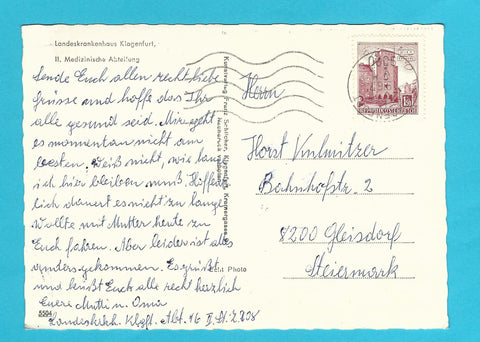 Landeskrankenhaus Klagenfurt,
II. Medizinische Abteilung
Sende Euch allen recht liebe
Grüsse und hoffe das Ihr
alle gesund seid. Mir geht
es momentan nicht am
besten. Weiß nicht, wie lang
ich hier bleiben muß. Hoffent
lich dauert es nicht zu lange
Wollte mit Mutter heute zu
Euch fahren. Aber leider ist alles
anders gekommen. Es grüßt
und küßt Euch alle recht herzlich
Euere Mutti u. Oma
Landeskrkh. Klgft. Abt. 16 II. St. Z. 208
5504
Kartenverlag Franz Schilcher, Klagenfurt,
Nachdruck verboten
Photo
Herrn
Horst Kulmitzer
Bahnhofstr. 2
8200 Gleisdorf
Steiermark
REPUBLIK ÖSTERREICH